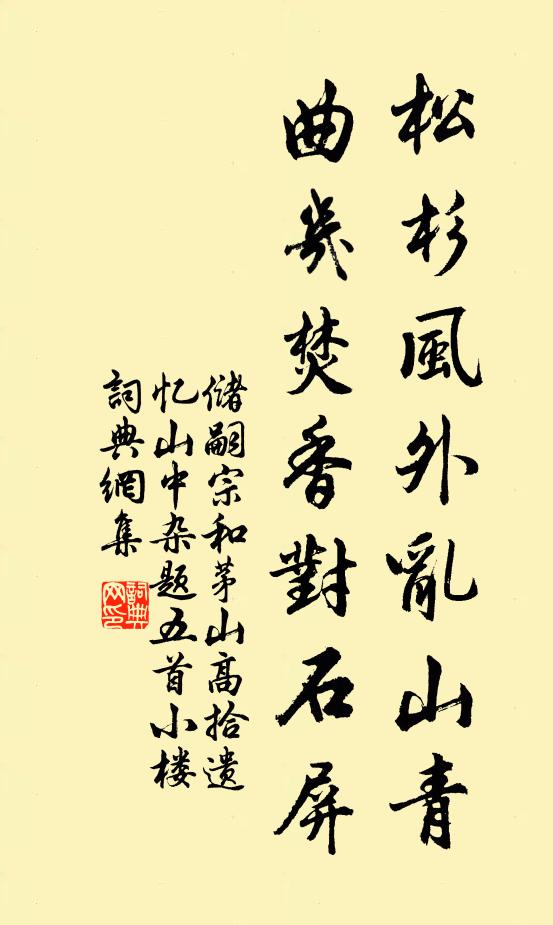 松杉風外亂山青
曲几焚香對石屏
儲嗣宗和茅山高拾遺
忆山中杂题五首小楼
詞典網集
詞典网印